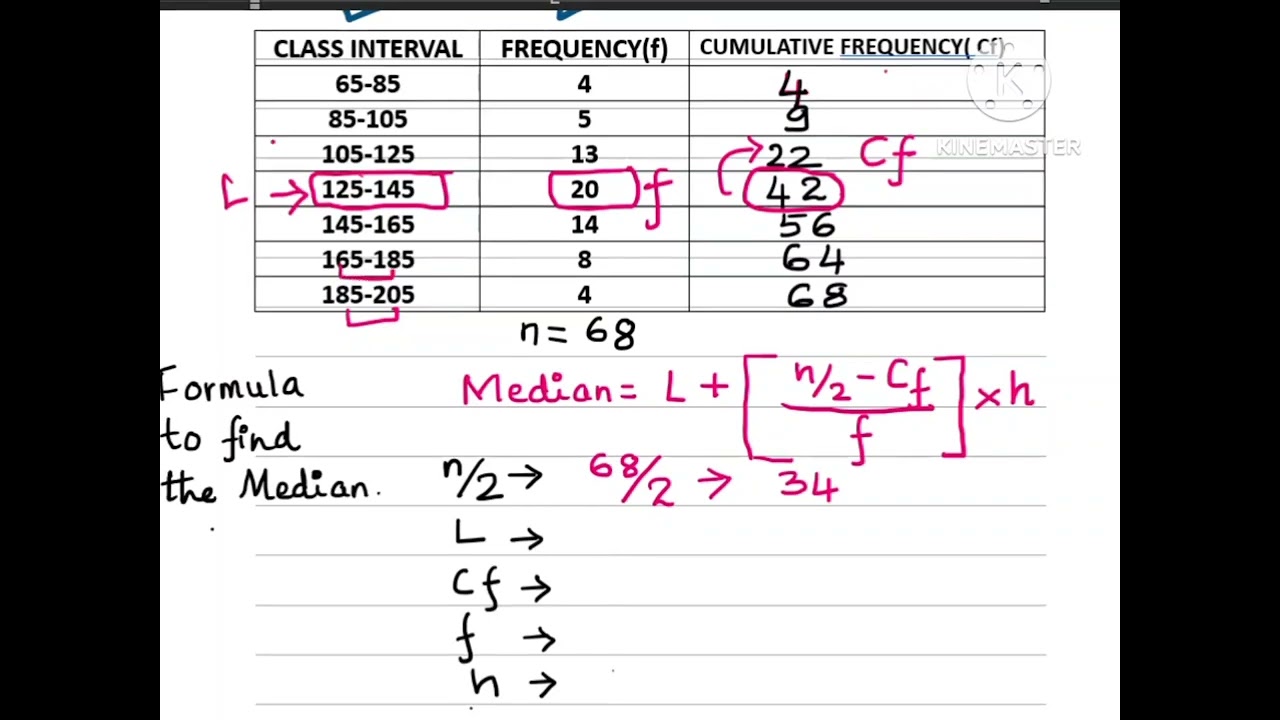 CLASS INTERVAL FREQUENCY(f) CUMULATIVE FREQUENCY( Cf)
65-85 4 4
85-105 5 9
105-125 13 22 Cf
L → 125-145 20 f 42
145-165 14 56
165-185 8 64
185-205 4 68
n = 68
K
KINEMASTER
Formula
to find
the Median.
Median = L + [ n/2 - Cf / f ] × h
n/2 → 68/2 → 34
L →
Cf →
f →
h →